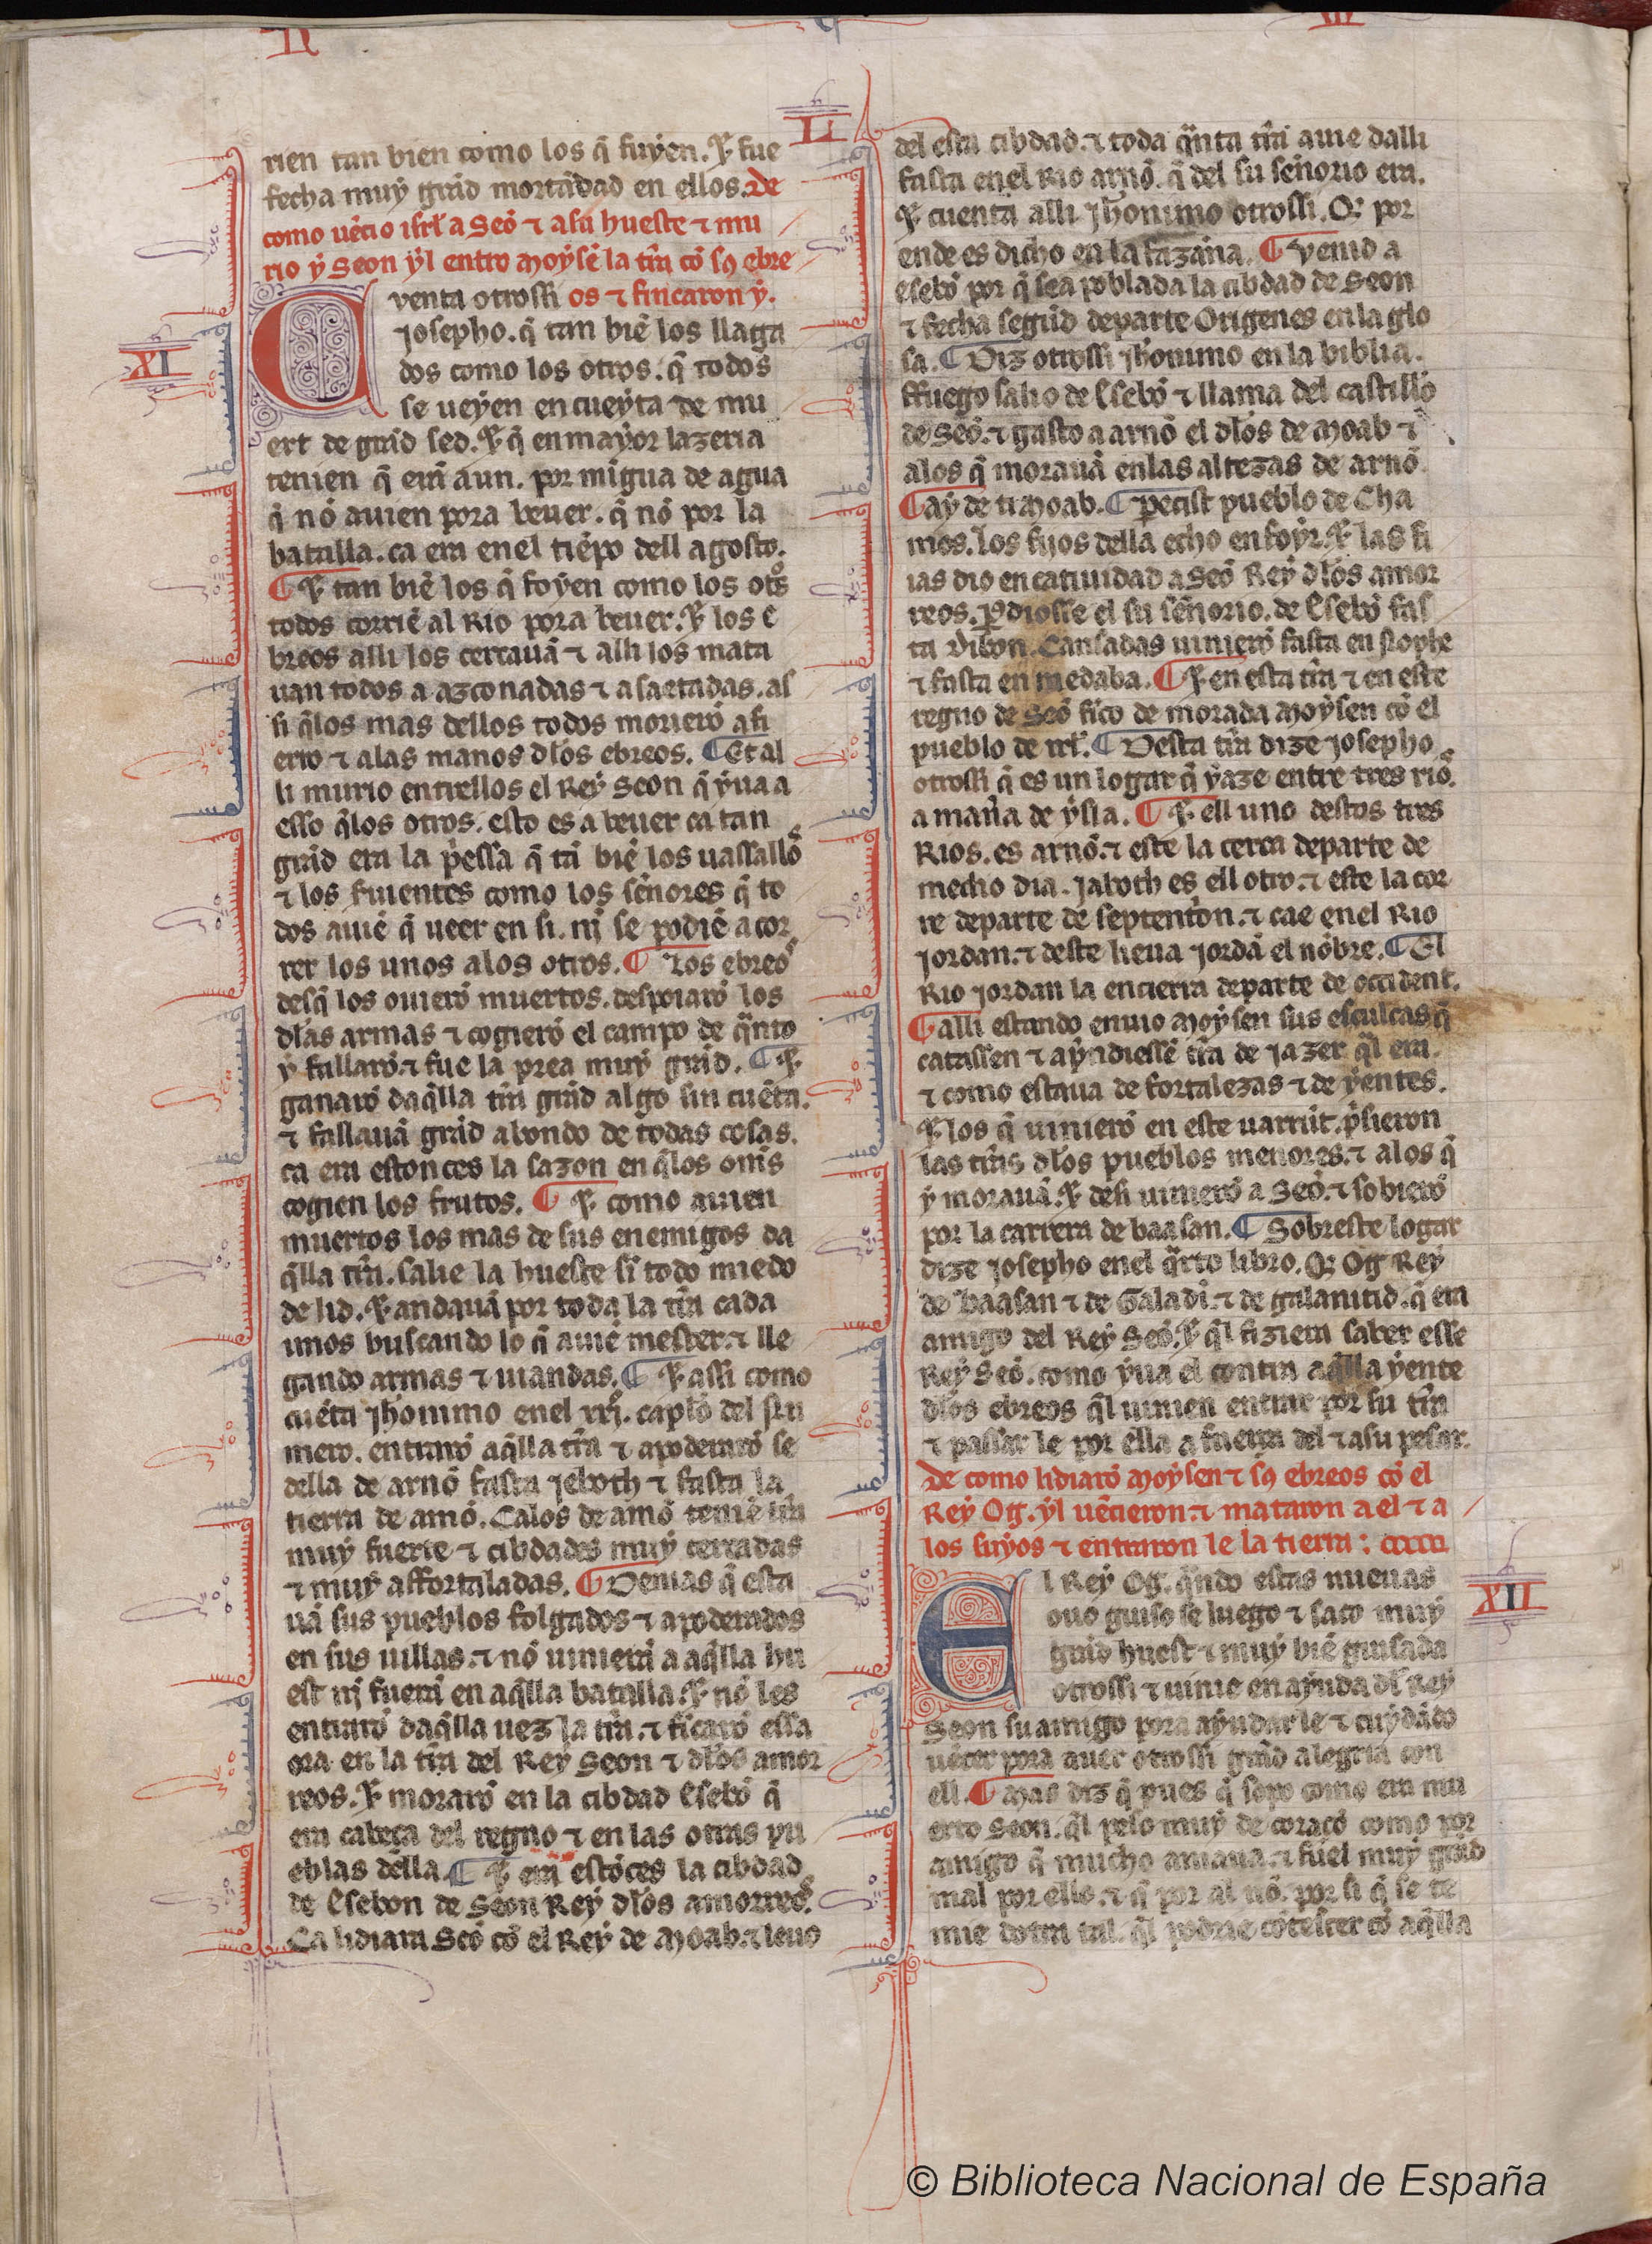 LI
rien tan bien como los q̃ fuyen. Et fue
fecha muy grãd mortãdad en ellos. De
como uẽcio isrł a Seõ ⁊ a su hueste ⁊ mu
rio y Seon yl entro Moysẽ la tr̃ra cõ sꝯ ebre
os ⁊ fincaron y.
XI
Cuenta otrossi
Josepho. q̃ tan biẽ los llaga
dos como los otros. q̃ todos
se ueyen en cueyta de mu
ert de grãd sed. Et q̃ en mayor lazeria
tenien q̃ erã aun. por mĩgua de agua
q̃ nõ auien pora beuer. q̃ nõ por la
batalla. ca era enel tiẽpo dell agosto.
¶ Et tan biẽ los q̃ foyen como los otᵒs
todos corriẽ al Rio pora beuer. Et los e
breos alli los cercauã ⁊ alli los mata
uan todos a azconadas ⁊ a saetadas. as
si q̃los mas dellos todos morierõ a fi
erro ⁊ alas manos dłos ebreos. ¶ Et al
li murio entrellos el Rey Seon q̃ yua a
esso q̃los otros. esto es a beuer ca tan
grãd era la p̃essa q̃ tã biẽ los uassallos
⁊ los siruientes como los señores q̃ to
dos auiẽ q̃ ueer en si. nĩ se podiẽ acor
rer los unos alos otros. ¶ Los ebreos
desq̃ los ouierõ muertos. despoiarõ los
dłas armas ⁊ cogierõ el campo de q̃nto
y fallarõ. ⁊ fue la prea muy grãd. ¶ Et
ganarõ daq̃lla tr̃ra grãd algo sin cuẽta.
⁊ fallauã grãd abondo de todas cosas.
ca era estonces la sazon en q̃los om̃s
cogien los frutos. ¶ Et como auien
muertos los mas de sus enemigos da
q̃lla tr̃ra. salie la hueste sĩ todo miedo
de lid. Et andauã por toda la tr̃ra cada
unos buscando lo q̃ auiẽ mester. ⁊ lle
gando armas ⁊ uiandas. ¶ Et assi como
cuẽta Jheronimo enel xxj.º capłõ del nu
mero. entrarõ aq̃lla tr̃ra ⁊ apoderarõ se
della de arnõ fasta Jeboth ⁊ fasta la
tierra de amõ. Ca los de amõ teniẽ tr̃ra
muy fuerte ⁊ cibdades muy cercadas
⁊ muy affortaladas. ¶ Demas q̃ esta
uã sus pueblos folgados ⁊ apoderados
en sus uillas. ⁊ nõ uinierã a aq̃lla hu
est nĩ fuerã en aq̃lla batalla. Et nõ les
entrarõ daq̃lla uez la tr̃ra. ⁊ fĩcarõ essa
ora en la tr̃ra del Rey Seon ⁊ dłos amor
reos. Et morarõ en la cibdad Esebõ q̃
era cabeça del regno ⁊ en las otras pu
eblas della. ¶ Et era estõces la cibdad
de Esebon de Seon Rey dłos amorreos.
Ca lidiara Seõ cõ el Rey de Moab. ⁊ leuo
del esta cibdad. ⁊ toda q̃nta tr̃ra auie dalli
fasta enel Rio arnõ. q̃ del su señorio era.
Et cuenta alli Jheronimo otrossi. Q̃ por
ende es dicho en la fazaña. ¶ Venid a
Esebõ por q̃ sea poblada la cibdad de Seon
⁊ fecha segũd departe Origenes en la glo
sa. ¶ Diz otrossi Jheronimo en la biblia.
ffuego salio de Esebõ ⁊ llama del castillo
de Seõ. ⁊ gasto a arnõ el dłos de Moab ⁊
alos q̃ morauã en las altezas de arnõ.
¶ Ay de ti Moab. ¶ Perecist pueblo de Cha
mos. los fijos della echo en foyr. Et las fi
ias dio en catiuidad a Seõ Rey dłos amor
reos. ꝑdiosse el su señorio. de Esebõ fas
ta Dibon. Cansadas uinierõ fasta en nophe
⁊ fasta en medaba. ¶ Et en esta tr̃ra ⁊ en este
regno de Seõ fĩco de morada Moysen cõ el
pueblo de isrł. ¶ Desta tr̃ra dize Josepho
otrossi q̃ es un logar q̃ yaze entre tres rios
a mañra de ysla. ¶ Et ell uno destos tres
Rios. es arnõ. ⁊ este la cerca departe de
medio dia. Jaboth es ell otro. ⁊ este la cor
re departe de septentrion. ⁊ cae enel Rio
Jordan. ⁊ deste lieua Jordã el nõbre. ¶ El
Rio Jordan la encierra departe de occident.
¶ alli estando enuio Moysen sus esculcas q̃
catassen ⁊ apndiessẽ tr̃ra de Jazer q̃l era.
⁊ como estaua de fortalezas ⁊ de yentes.
Et los q̃ uinierõ en este uarrũt. p̃sieron
las tr̃ras dłos pueblos menores. ⁊ a los q̃
y morauã. Et desi uinierõ a Seõ. ⁊ sobierõ
por la carrera de baasan. ¶ Sobreste logar
dize Josepho enel q̃rto libro. Q̃ Og Rey
de Baasan ⁊ de Galadi. ⁊ de galanitid. q̃ era
amigo del Rey Seõ. Et q̃l fiziera saber esse
Rey Seõ. como yua el contra aq̃lla yente
dłos ebreos q̃l uinien entrar por su tr̃ra
⁊ passar le por ella a fuerça del ⁊ a su pesar.
De como lidiarõ Moysen ⁊ sꝯ ebreos cõ el
Rey Og. yl uẽcieron. ⁊ mataron a el ⁊ a
los suyos ⁊ entraron le la tierra :
XII
El Rey Og. q̃ndo estas nueuas
ouo guiso se luego ⁊ saco muy
grãd huest ⁊ muy biẽ guisada
otrossi ⁊ uinie en ayuda dł Rey
Seon su amigo pora ayudar le ⁊ cuydãdo
uẽcer pora auer otrossi grãd alegria con
ell. ¶ Mas diz q̃ pues q̃ sopo como era mu
erto Seon. q̃l peso muy de coraçõ como por
amigo q̃ mucho amaua. ⁊ fuel muy grãd
mal por ello. ⁊ q̃ por al nõ. por si q̃ se te
mie dotra tal. q̃l podrie cõtescer cõ aq̃lla
© Biblioteca Nacional de España